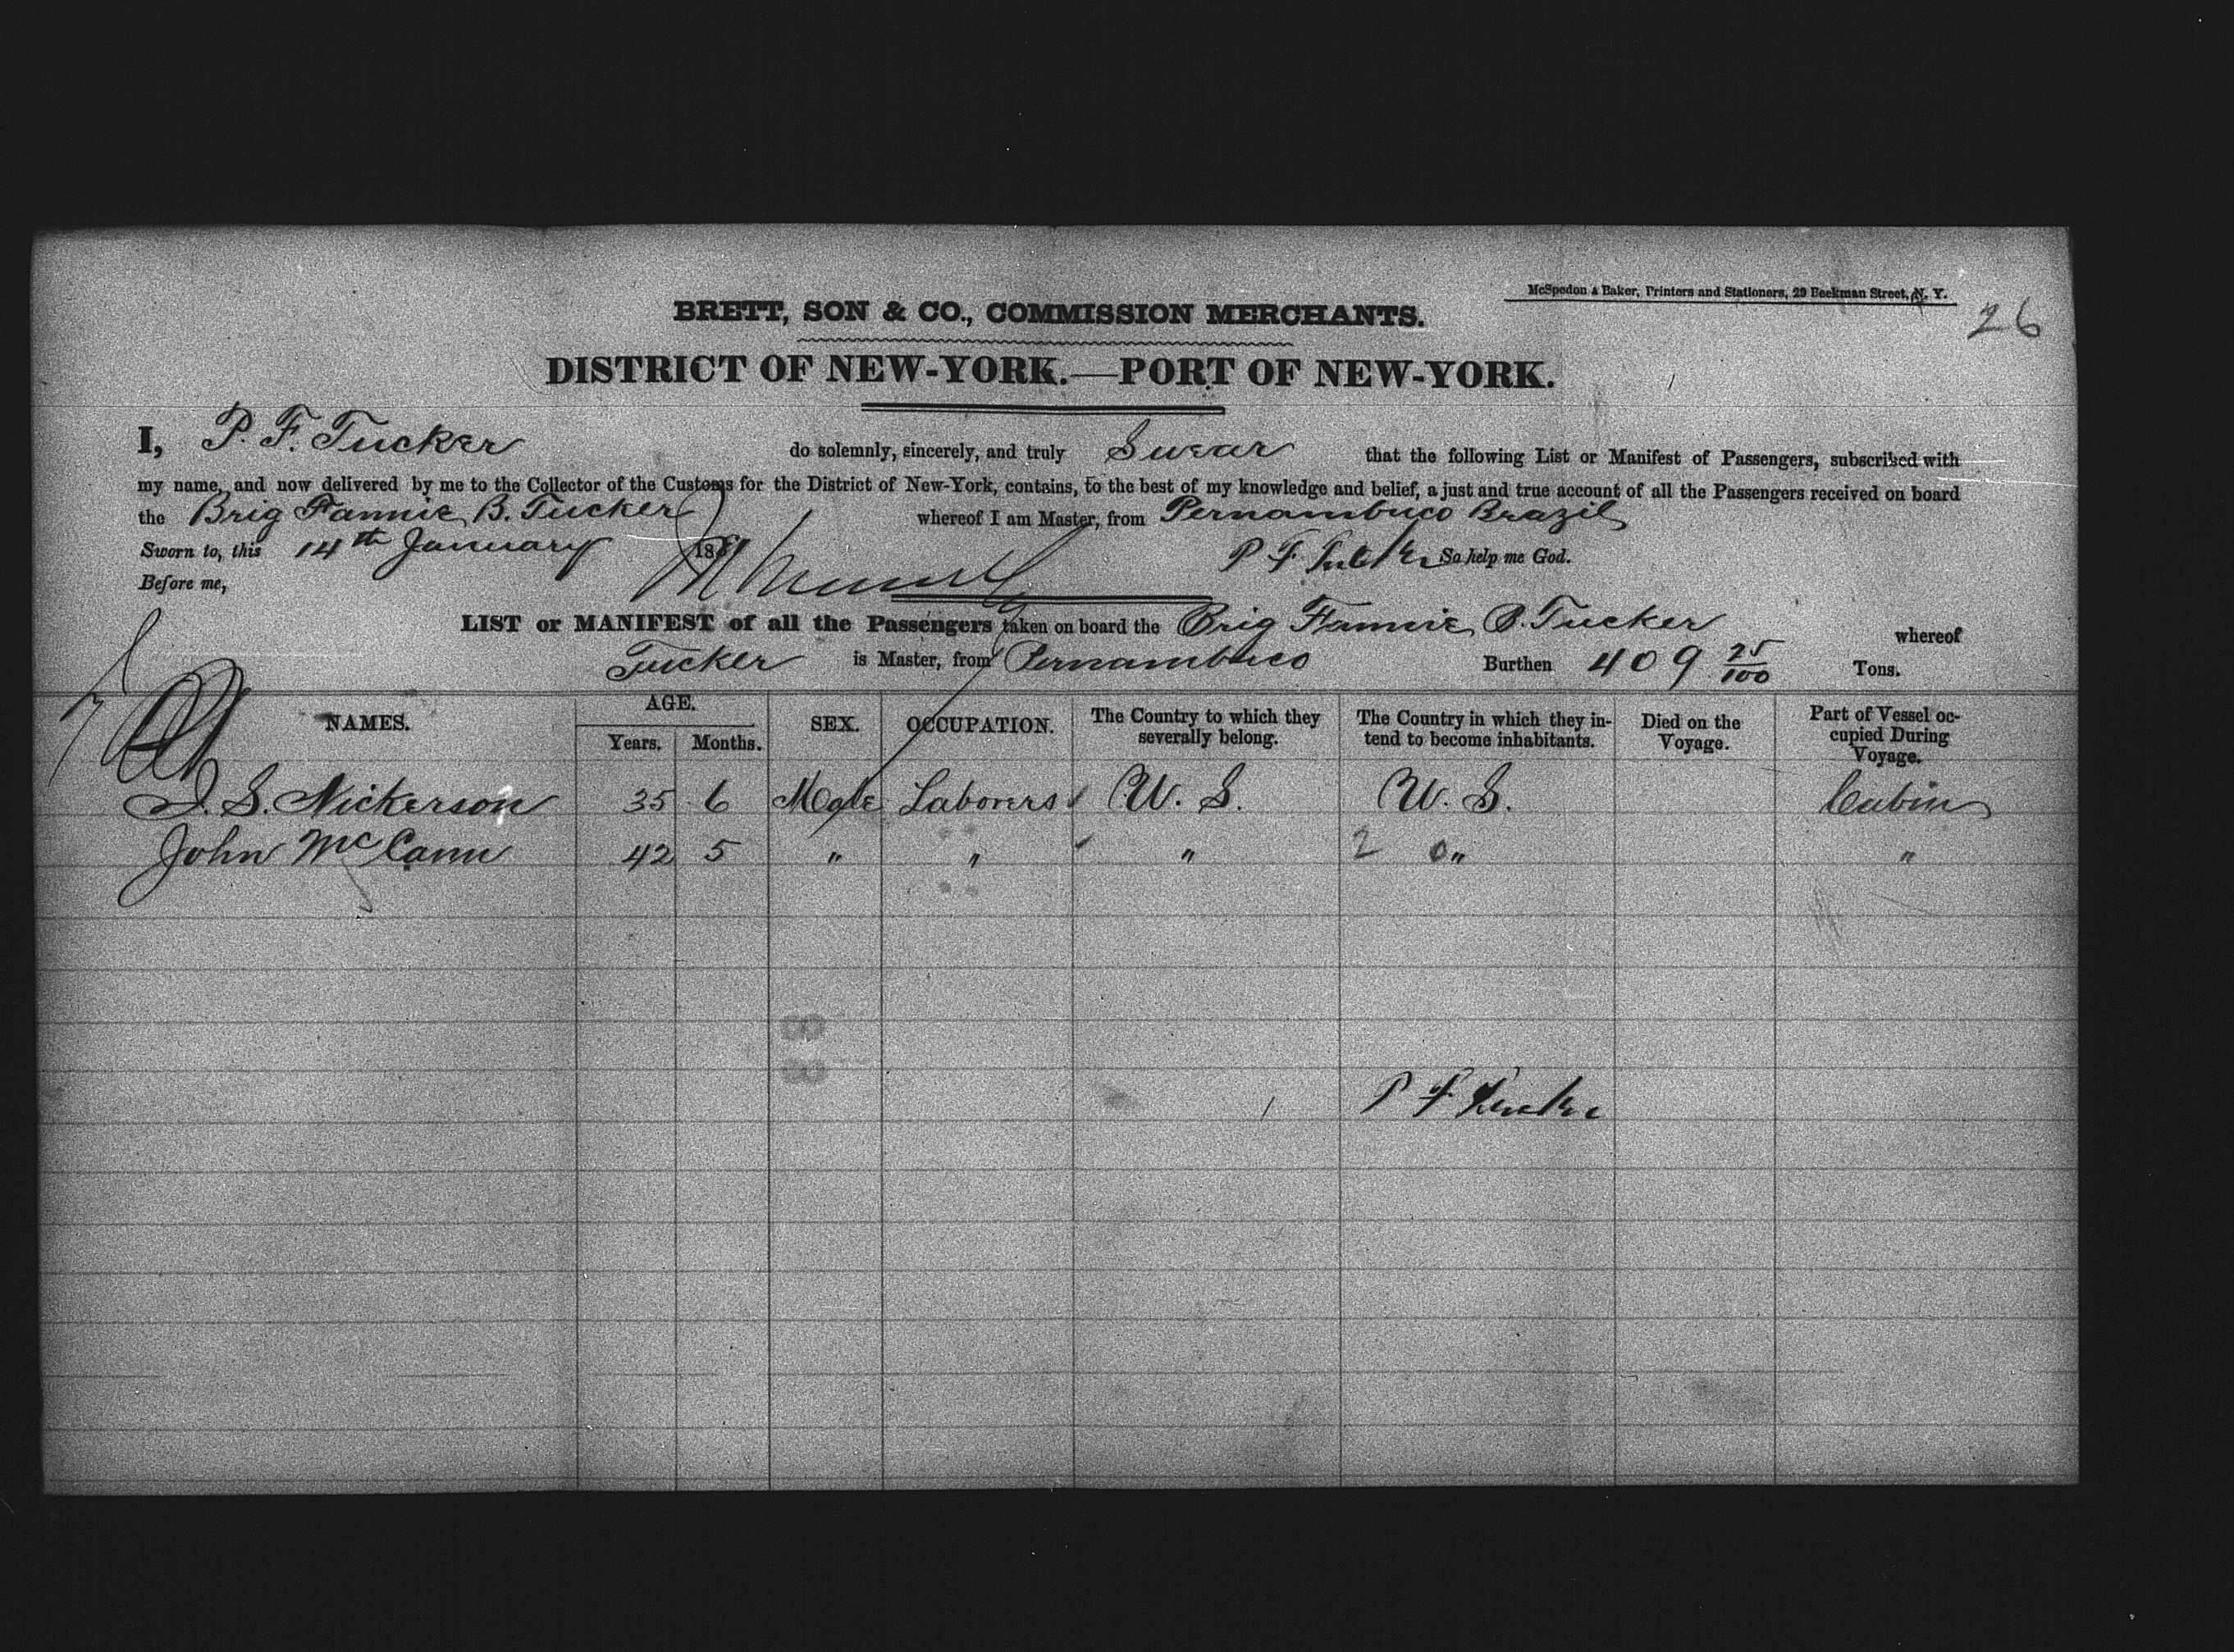 McSpedon & Baker, Printers and Stationers, 29 Beekman Street, N. Y.
26
BRETT, SON & CO., COMMISSION MERCHANTS.
DISTRICT OF NEW-YORK.—PORT OF NEW-YORK.
I, P. F. Tucker do solemnly, sincerely, and truly Swear that the following List or Manifest of Passengers, subscribed with
my name, and now delivered by me to the Collector of the Customs for the District of New-York, contains, to the best of my knowledge and belief, a just and true account of all the Passengers received on board
the Brig Fannie B. Tucker whereof I am Master, from Pernambuco Brazil
Sworn to, this 14th January 1881 P F Tucker So help me God.
Before me,
LIST or MANIFEST of all the Passengers taken on board the Brig Fannie B. Tucker whereof
Tucker is Master, from Pernambuco Burthen 409 25/100 Tons.
NAMES. AGE. Years. Months. SEX. OCCUPATION. The Country to which they severally belong. The Country in which they intend to become inhabitants. Died on the Voyage. Part of Vessel occupied During Voyage.
S. Nickerson 35 6 Male Laborers U. S. U. S. Cabin
John McCann 42 5 " " " 2 0 " "
P F Tucker